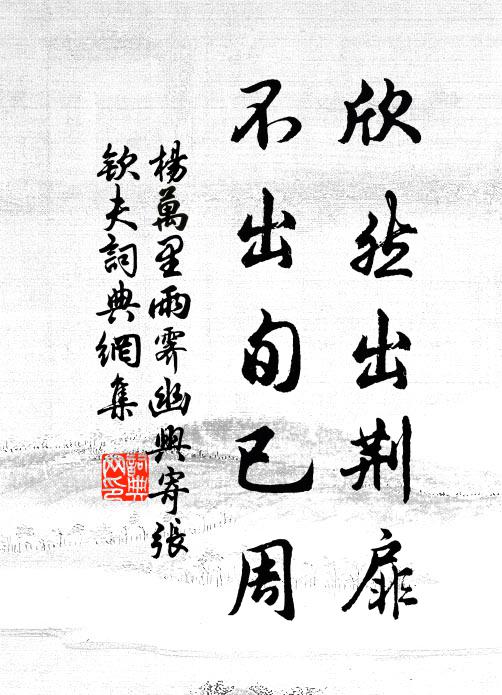 欣然出荆扉
不出旬已周
楊萬里雨霽幽興寄張
欽夫詞典網集
詞典網印